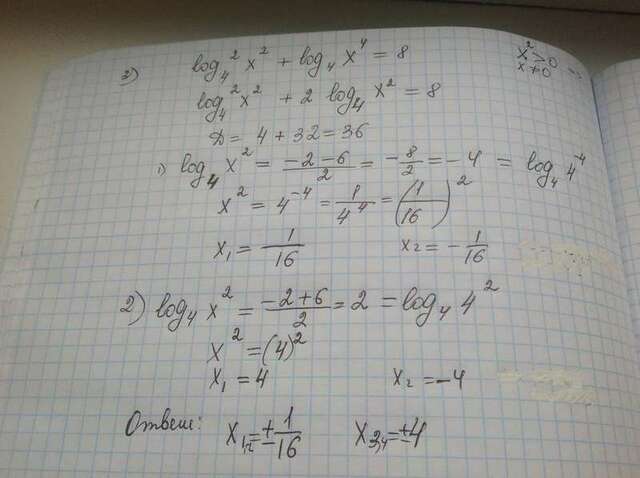 3) log₄² x² + log₄ x⁴ = 8
x² > 0
x ≠ 0
log₄² x² + 2 log₄ x² = 8
D = 4 + 32 = 36
1) log₄ x² = (-2-6)/2 = -8/2 = -4 = log₄ 4⁻⁴
x² = 4⁻⁴ = 1/4⁴ = (1/16)²
x₁ = 1/16 x₂ = -1/16
2) log₄ x² = (-2+6)/2 = 2 = log₄ 4²
x² = (4)²
x₁ = 4 x₂ = -4
Ответ: x₁,₂ = ±1/16 x₃,₄ = ±4